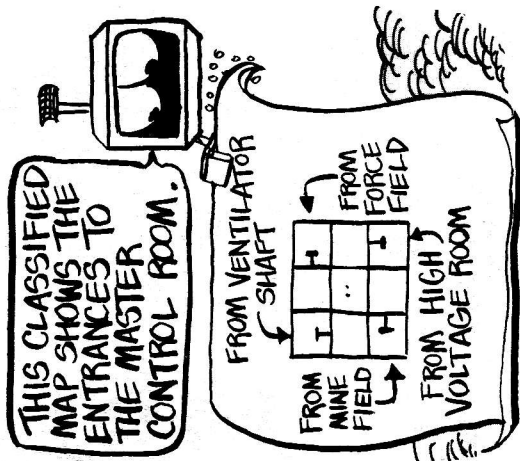 THIS CLASSIFIED
MAP SHOWS THE
ENTRANCES TO
THE MASTER
CONTROL ROOM.
FROM VENTILATOR
SHAFT
FROM
FORCE
FIELD
FROM
MINE
FIELD
FROM HIGH
VOLTAGE ROOM